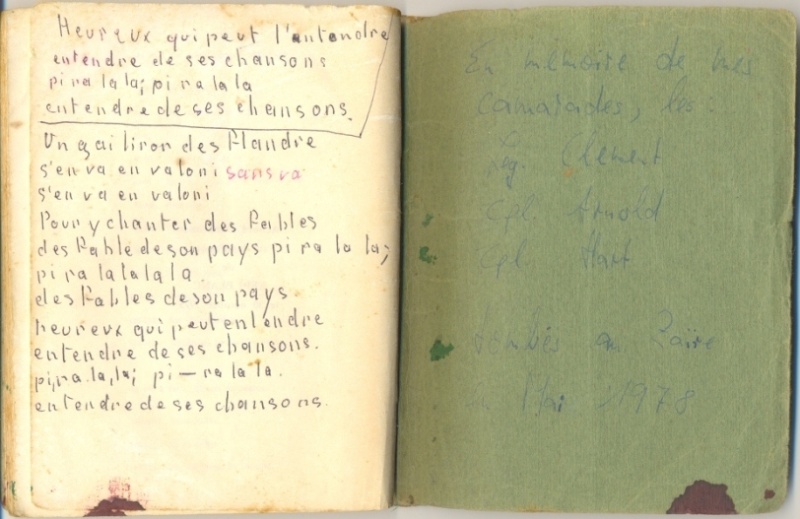 Heureux qui peut l'entendre
entendre de ses chansons
pi ra la la; pi ra la la
entendre de ses chansons.
Un gai liron des Flandre
s'en va en valoni sans va
s'en va en valoni
Pour y chanter des Fables
des Fable de son pays pi ra la la;
pi ra la la la la.
des Fables de son pays.
heureux qui peut entendre
entendre de ses chansons.
pi, ra la, la; pi – ra la la.
entendre de ses chansons.
En mémoire de mes
camarades, les:
Clement
Cpl. Arnold
Cpl. Hart
tombés au Zaïre
Mai 1978